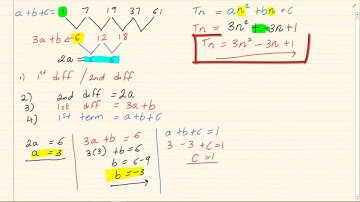 a+b+c= 1 7 19 37 61
3a+b= 6 12 18
2a= 6 6
Tn = an² + bn + c
Tn = 3n² + -3n + 1
Tn = 3n² - 3n + 1
1) 1st diff / 2nd diff
2) 2nd diff = 2a
3) 1st diff = 3a+b
4) 1st term = a+b+c
2a = 6
a = 3
3a+b = 6
3(3) +b = 6
b = 6-9
b = -3
a+b+c = 1
3 -3 +c = 1
c = 1